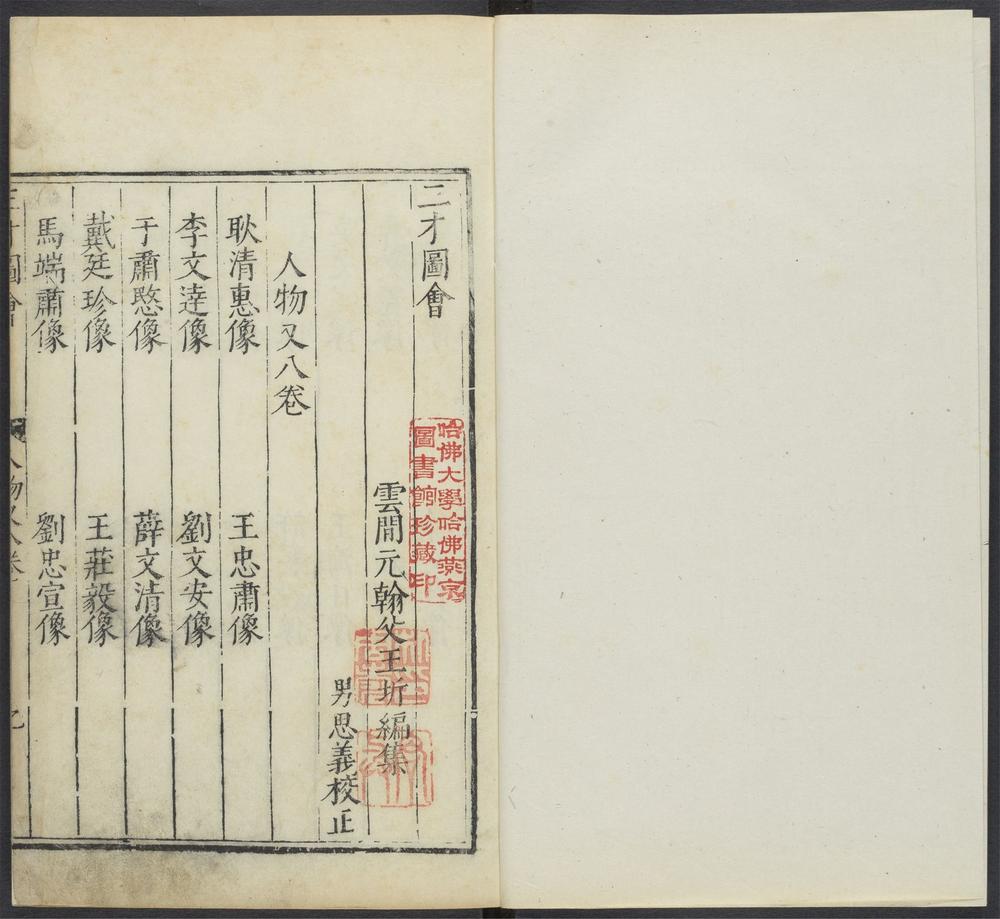 三才圖會
雲間元翰父王圻編集
男思義校正
人物又八卷
耿清惠像 王忠肅像
李文達像 劉文安像
于肅愍像 薛文清像
戴廷珍像 王莊毅像
馬端肅像 劉忠宣像
三才圖會 人物又八卷
哈佛大學哈佛燕京
圖書館珍藏印